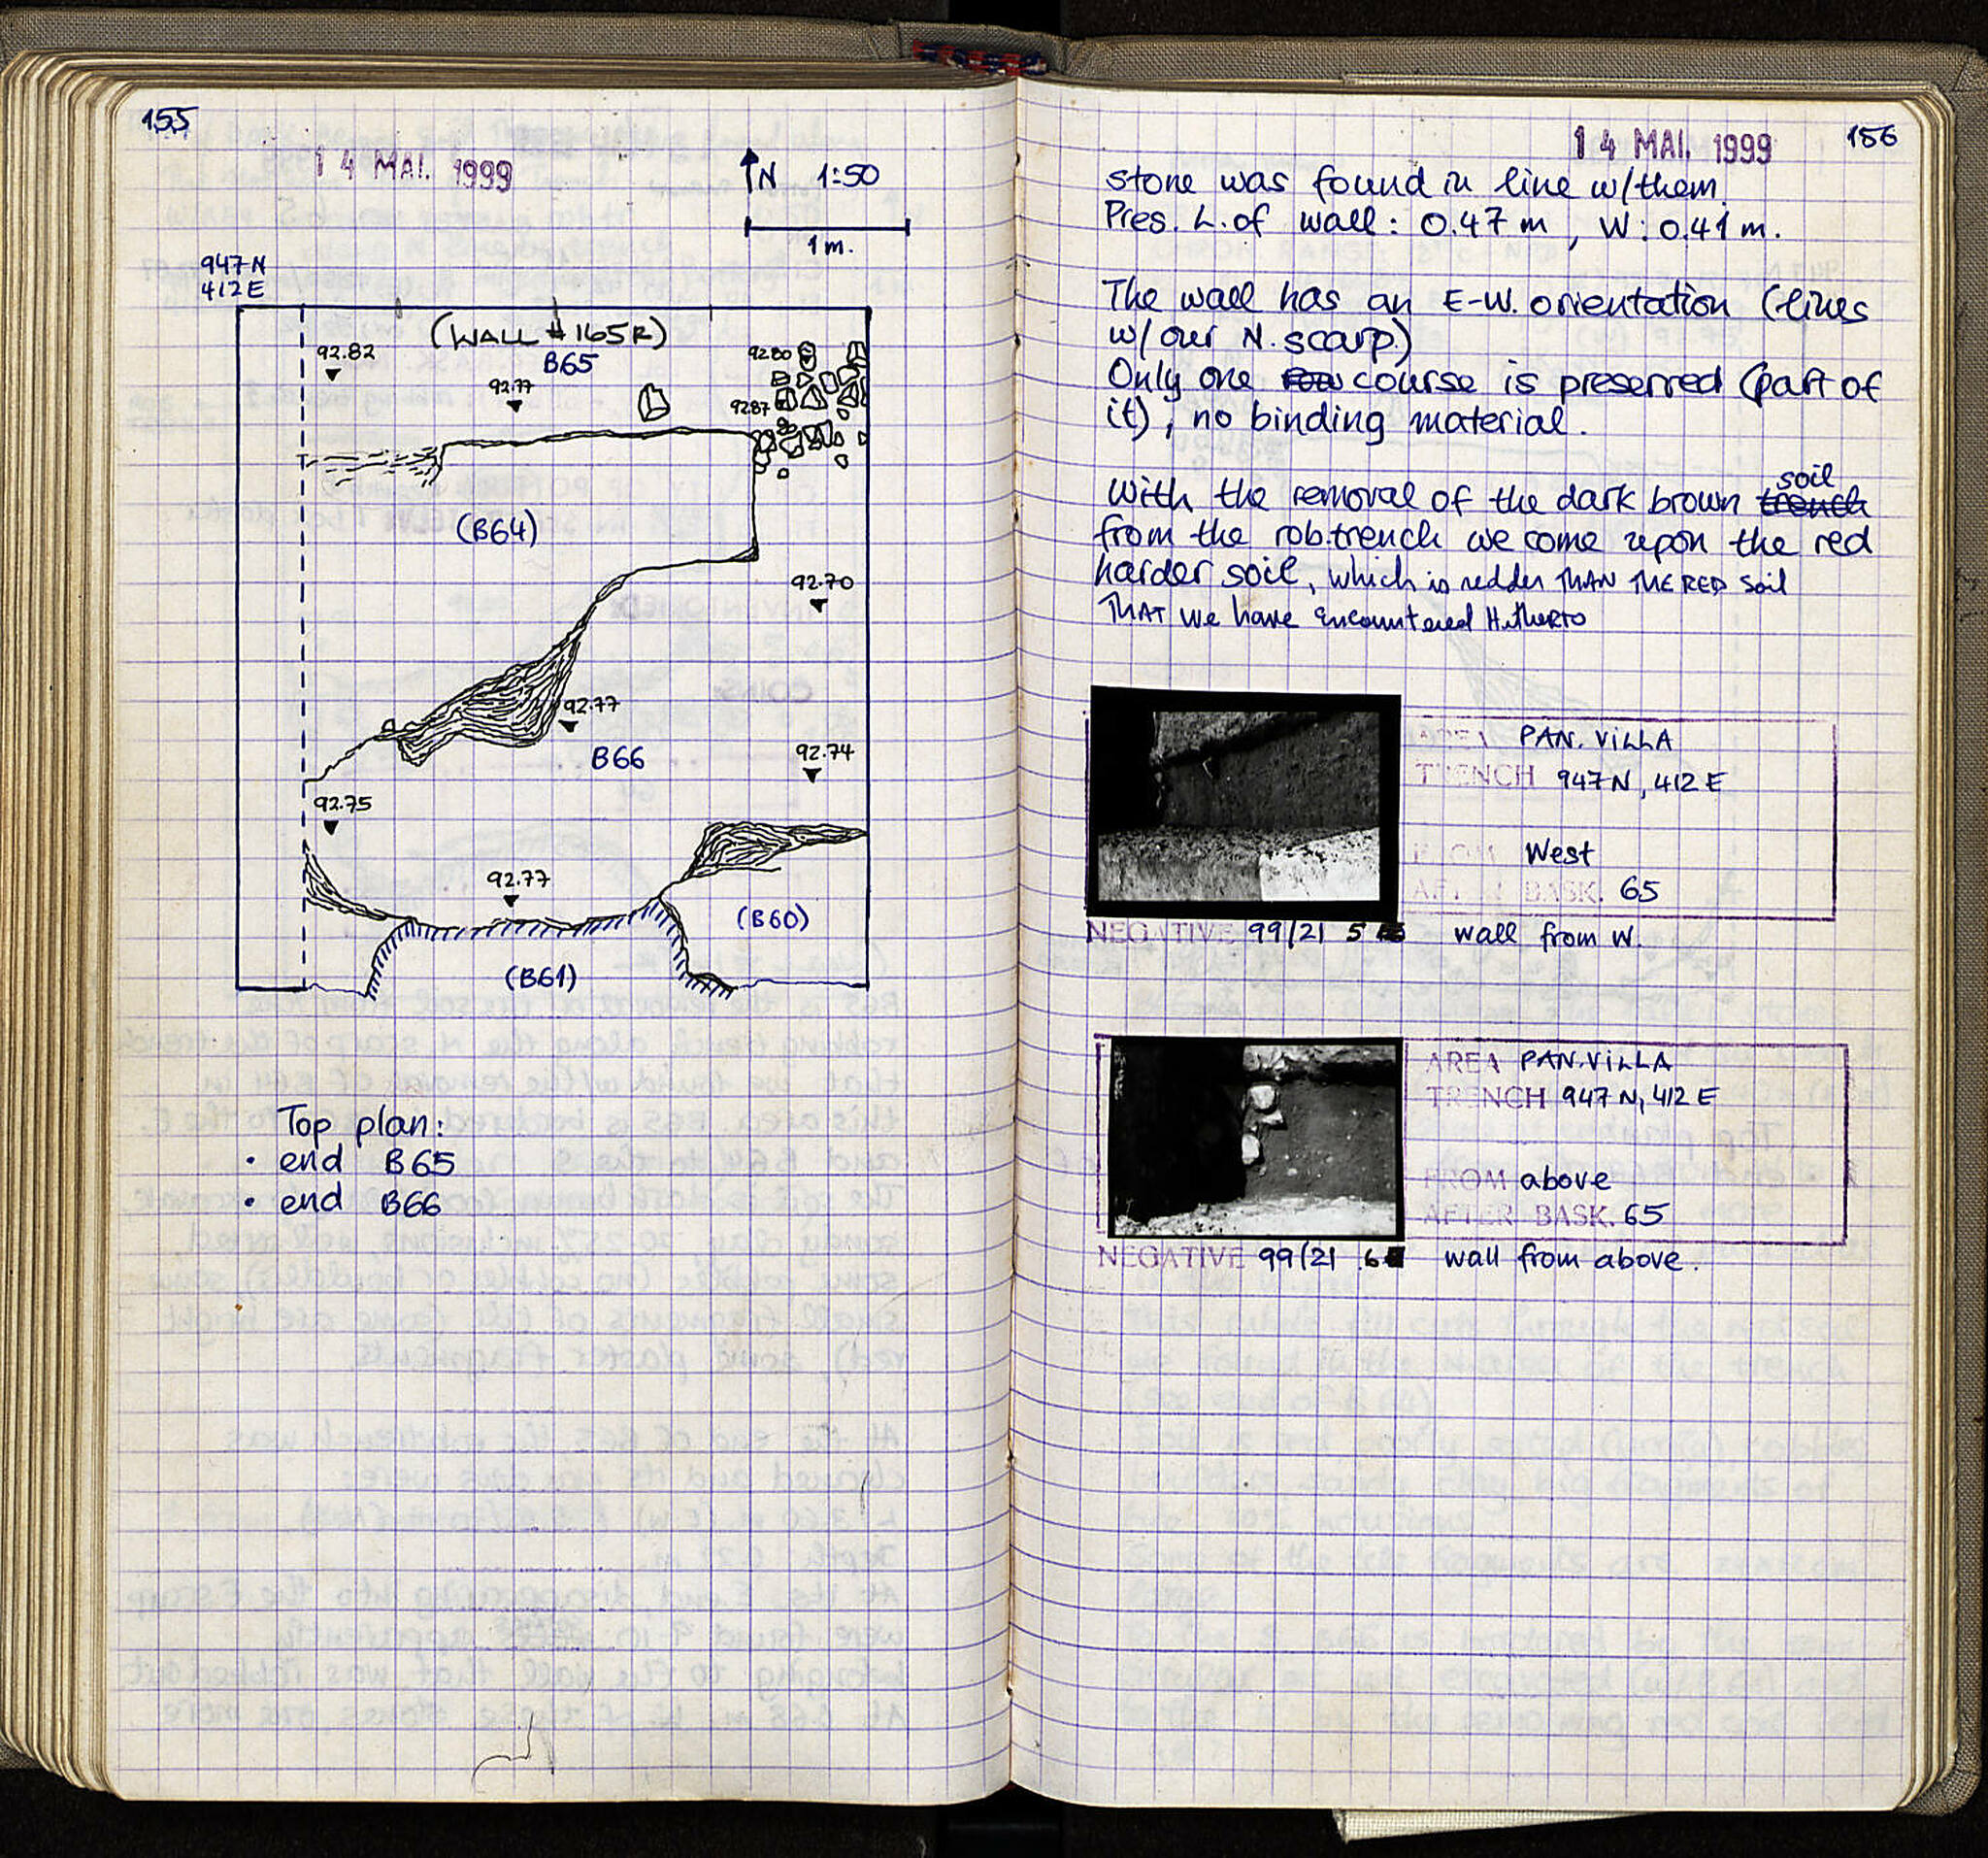 155
14 MAI. 1999
N 1:50
1m.
947 N
412 E
(WALL # 165R)
B65
92.82
92.77
92.80
92.87
(B64)
92.70
92.77
B66
92.74
92.75
92.77
(B60)
(B61)
Top plan:
• end B65
• end B66
14 MAI. 1999
156
stone was found in line w/them.
Pres. L. of wall: 0.47 m, W: 0.41 m.
The wall has an E-W. orientation (lines
w/ our N. scarp.)
Only one course is preserved (part of
it), no binding material.
With the removal of the dark brown trench soil
from the rob.trench we come upon the red
harder soil, which is redder THAN THE RED soil
THAT we have encountered HitHERTO
AREA PAN. VILLA
TRENCH 947 N, 412 E
FROM West
AFTER BASK. 65
NEGATIVE 99/21 5 wall from W.
AREA PAN. VILLA
TRENCH 947 N, 412 E
FROM above
AFTER BASK. 65
NEGATIVE 99/21 6 wall from above.